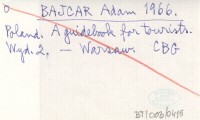 0 BAJCAR Adam 1966.
Poland. A guidebook for tourists.
Wyd. 2. – Warsaw. CBG
BT/003/0415